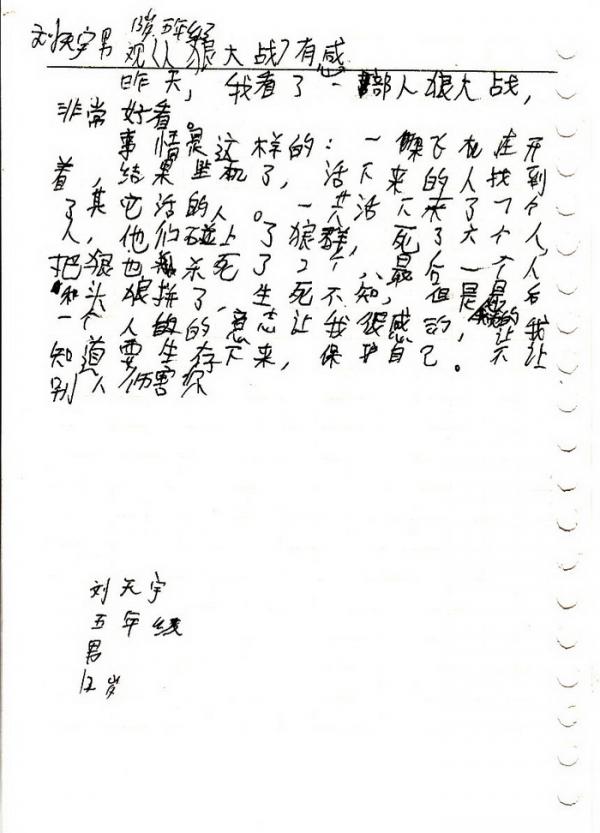 刘天宇男 13岁五年级
观《人狼大战》有感
昨天，我看了一部人狼大战，
非常好看。
事情是这样的：一艘飞机在开
着，结果坠机了，活下来的人在找到
了其它活的人。一共活下来了7个
人，他们碰上了狼群，死了六个人，
把狼也杀死了2个，最后一个人
和头狼拼了，生死不知，但是最后
一个人的意志让我很感
知道要生存下来，保护自己。不让
别人伤害你
刘天宇
五年级
男
12岁